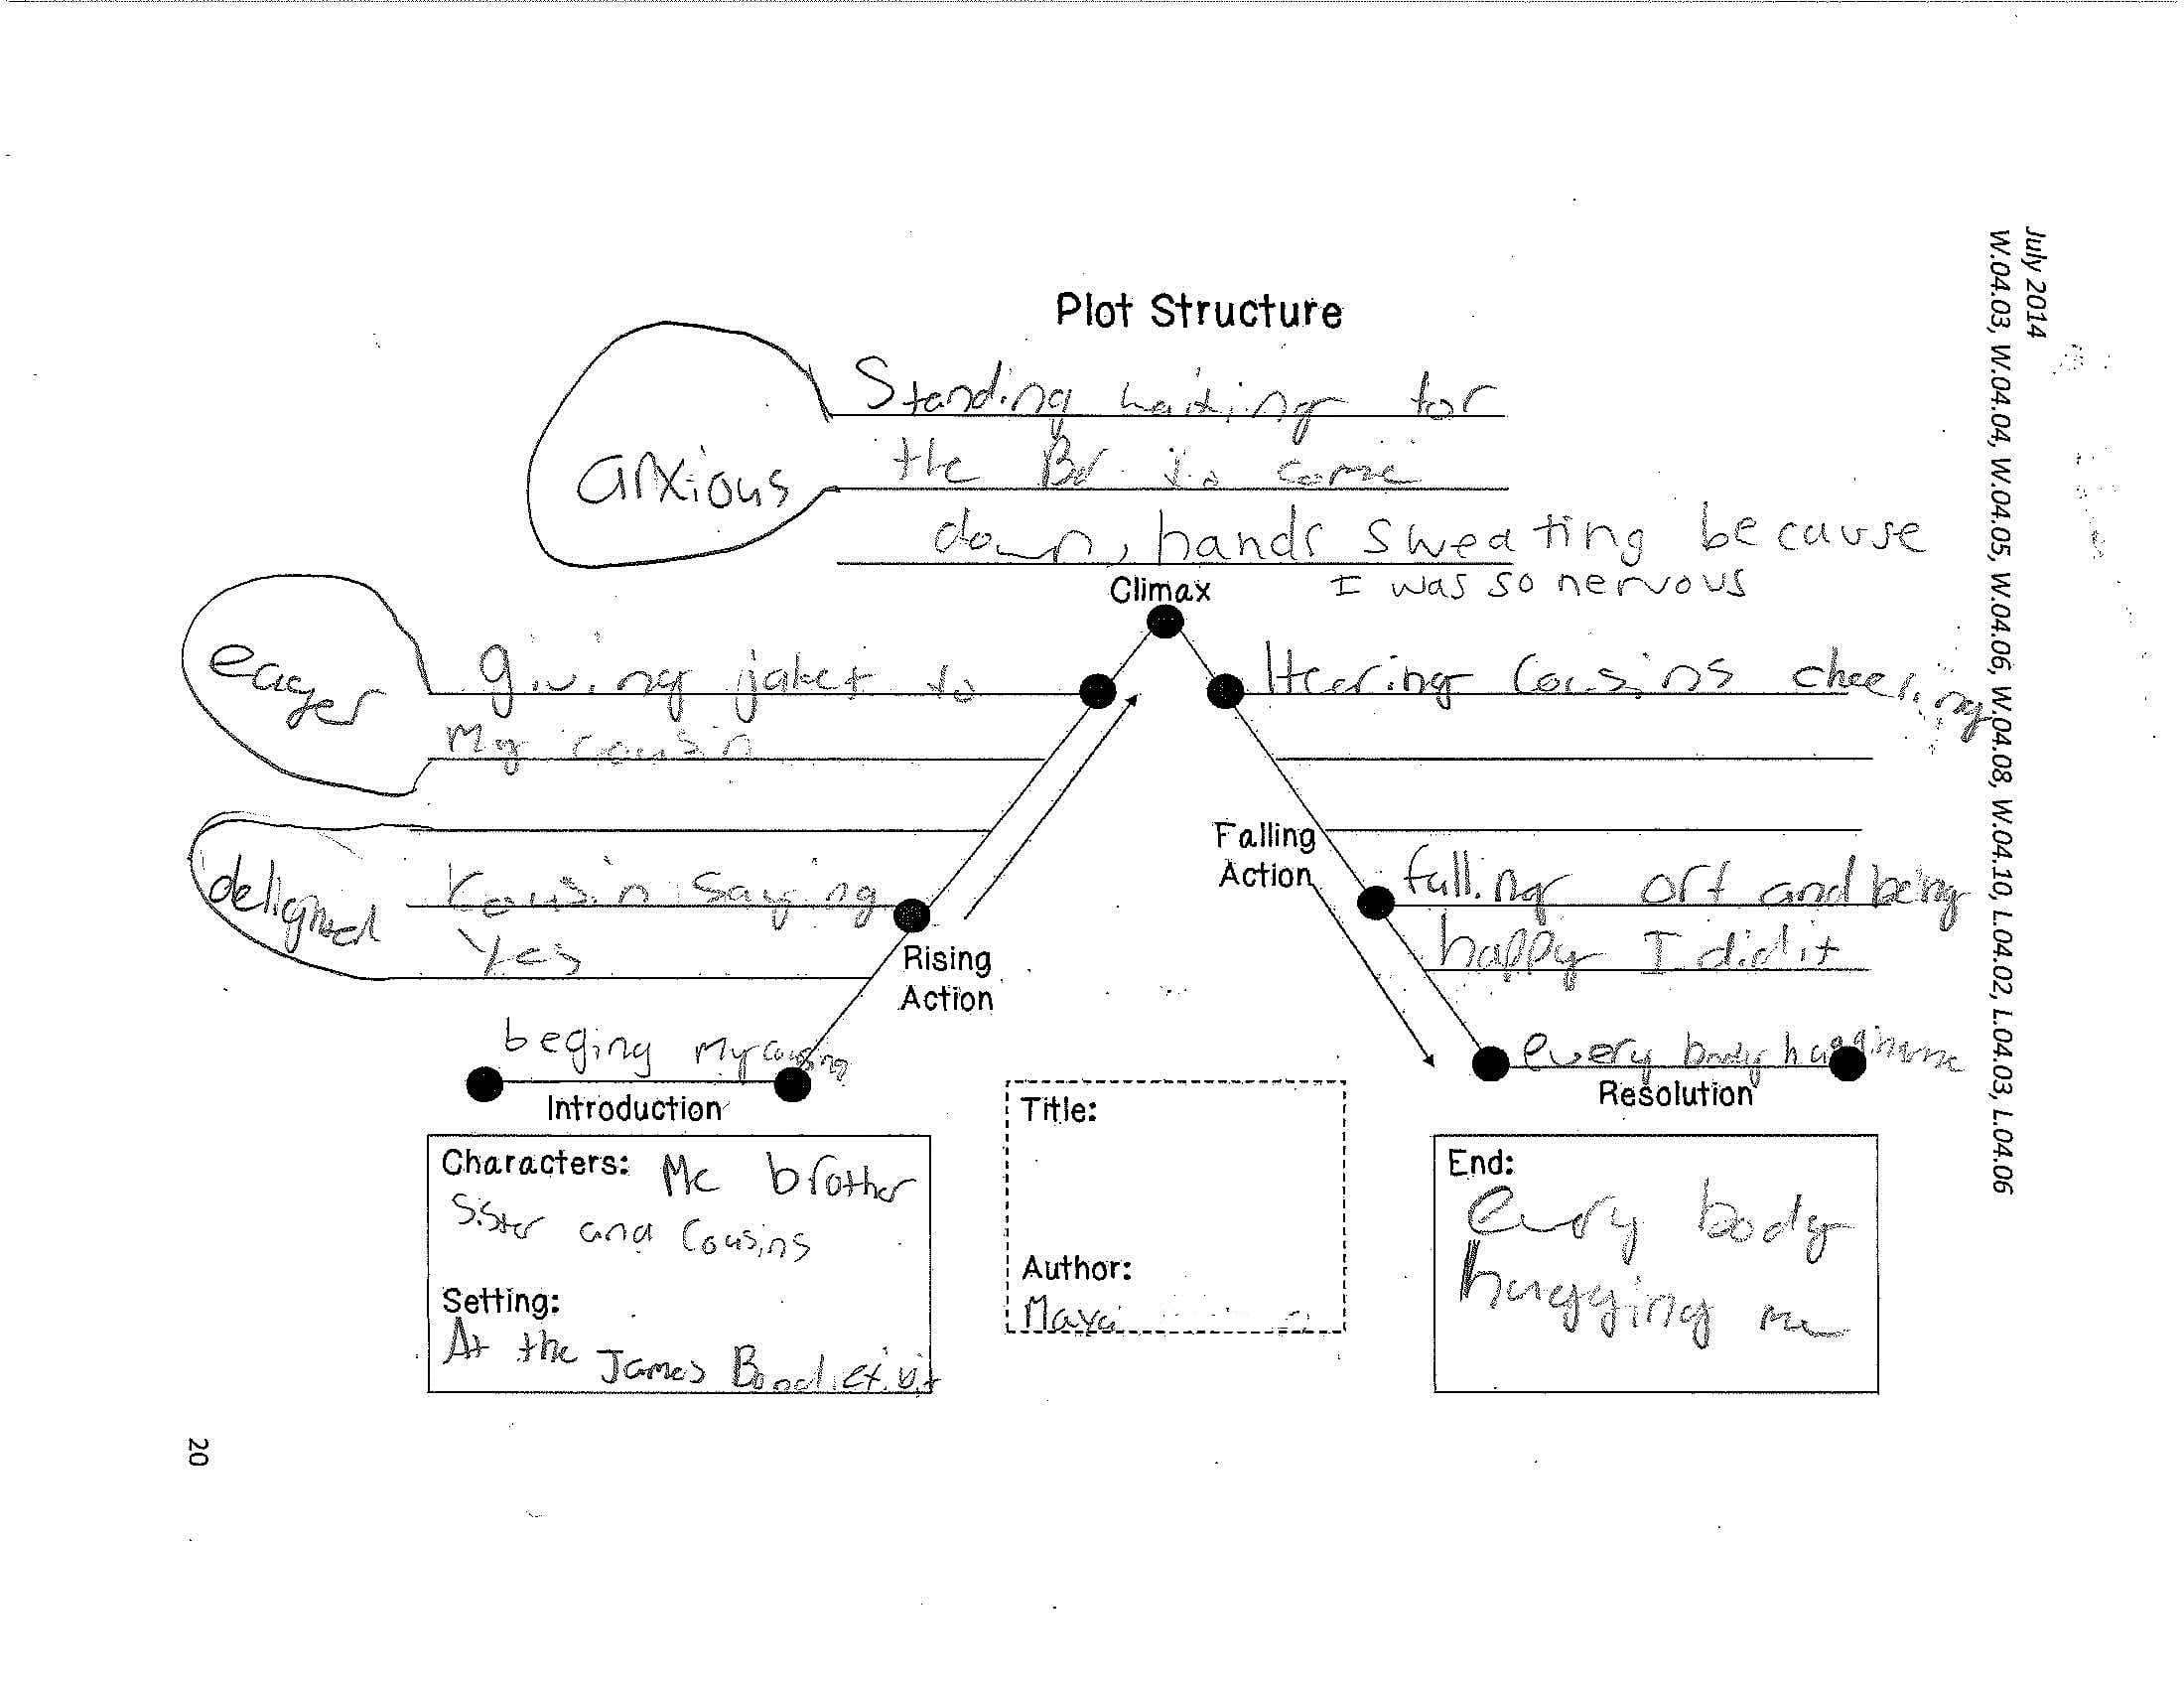 July 2014
W.04.03, W.04.04, W.04.05, W.04.06, W.04.08, W.04.10, L.04.02, L.04.03, L.04.06
Plot Structure
Standing waiting for
anxious
the to come
down, hands sweating because
I was so nervous
Climax
eager
giving jaket to
my cousin
Heering Cousins cheering
delighted
Cousin saying
yes
Rising
Action
Falling
Action
falling off and being
happy I did it
beging my cousing
Introduction
every body hugging me
Resolution
Characters: Me brother
Sister and Cousins
Setting:
At the James Bond
Title:
Author:
Maya
End:
every body
hugging me
20